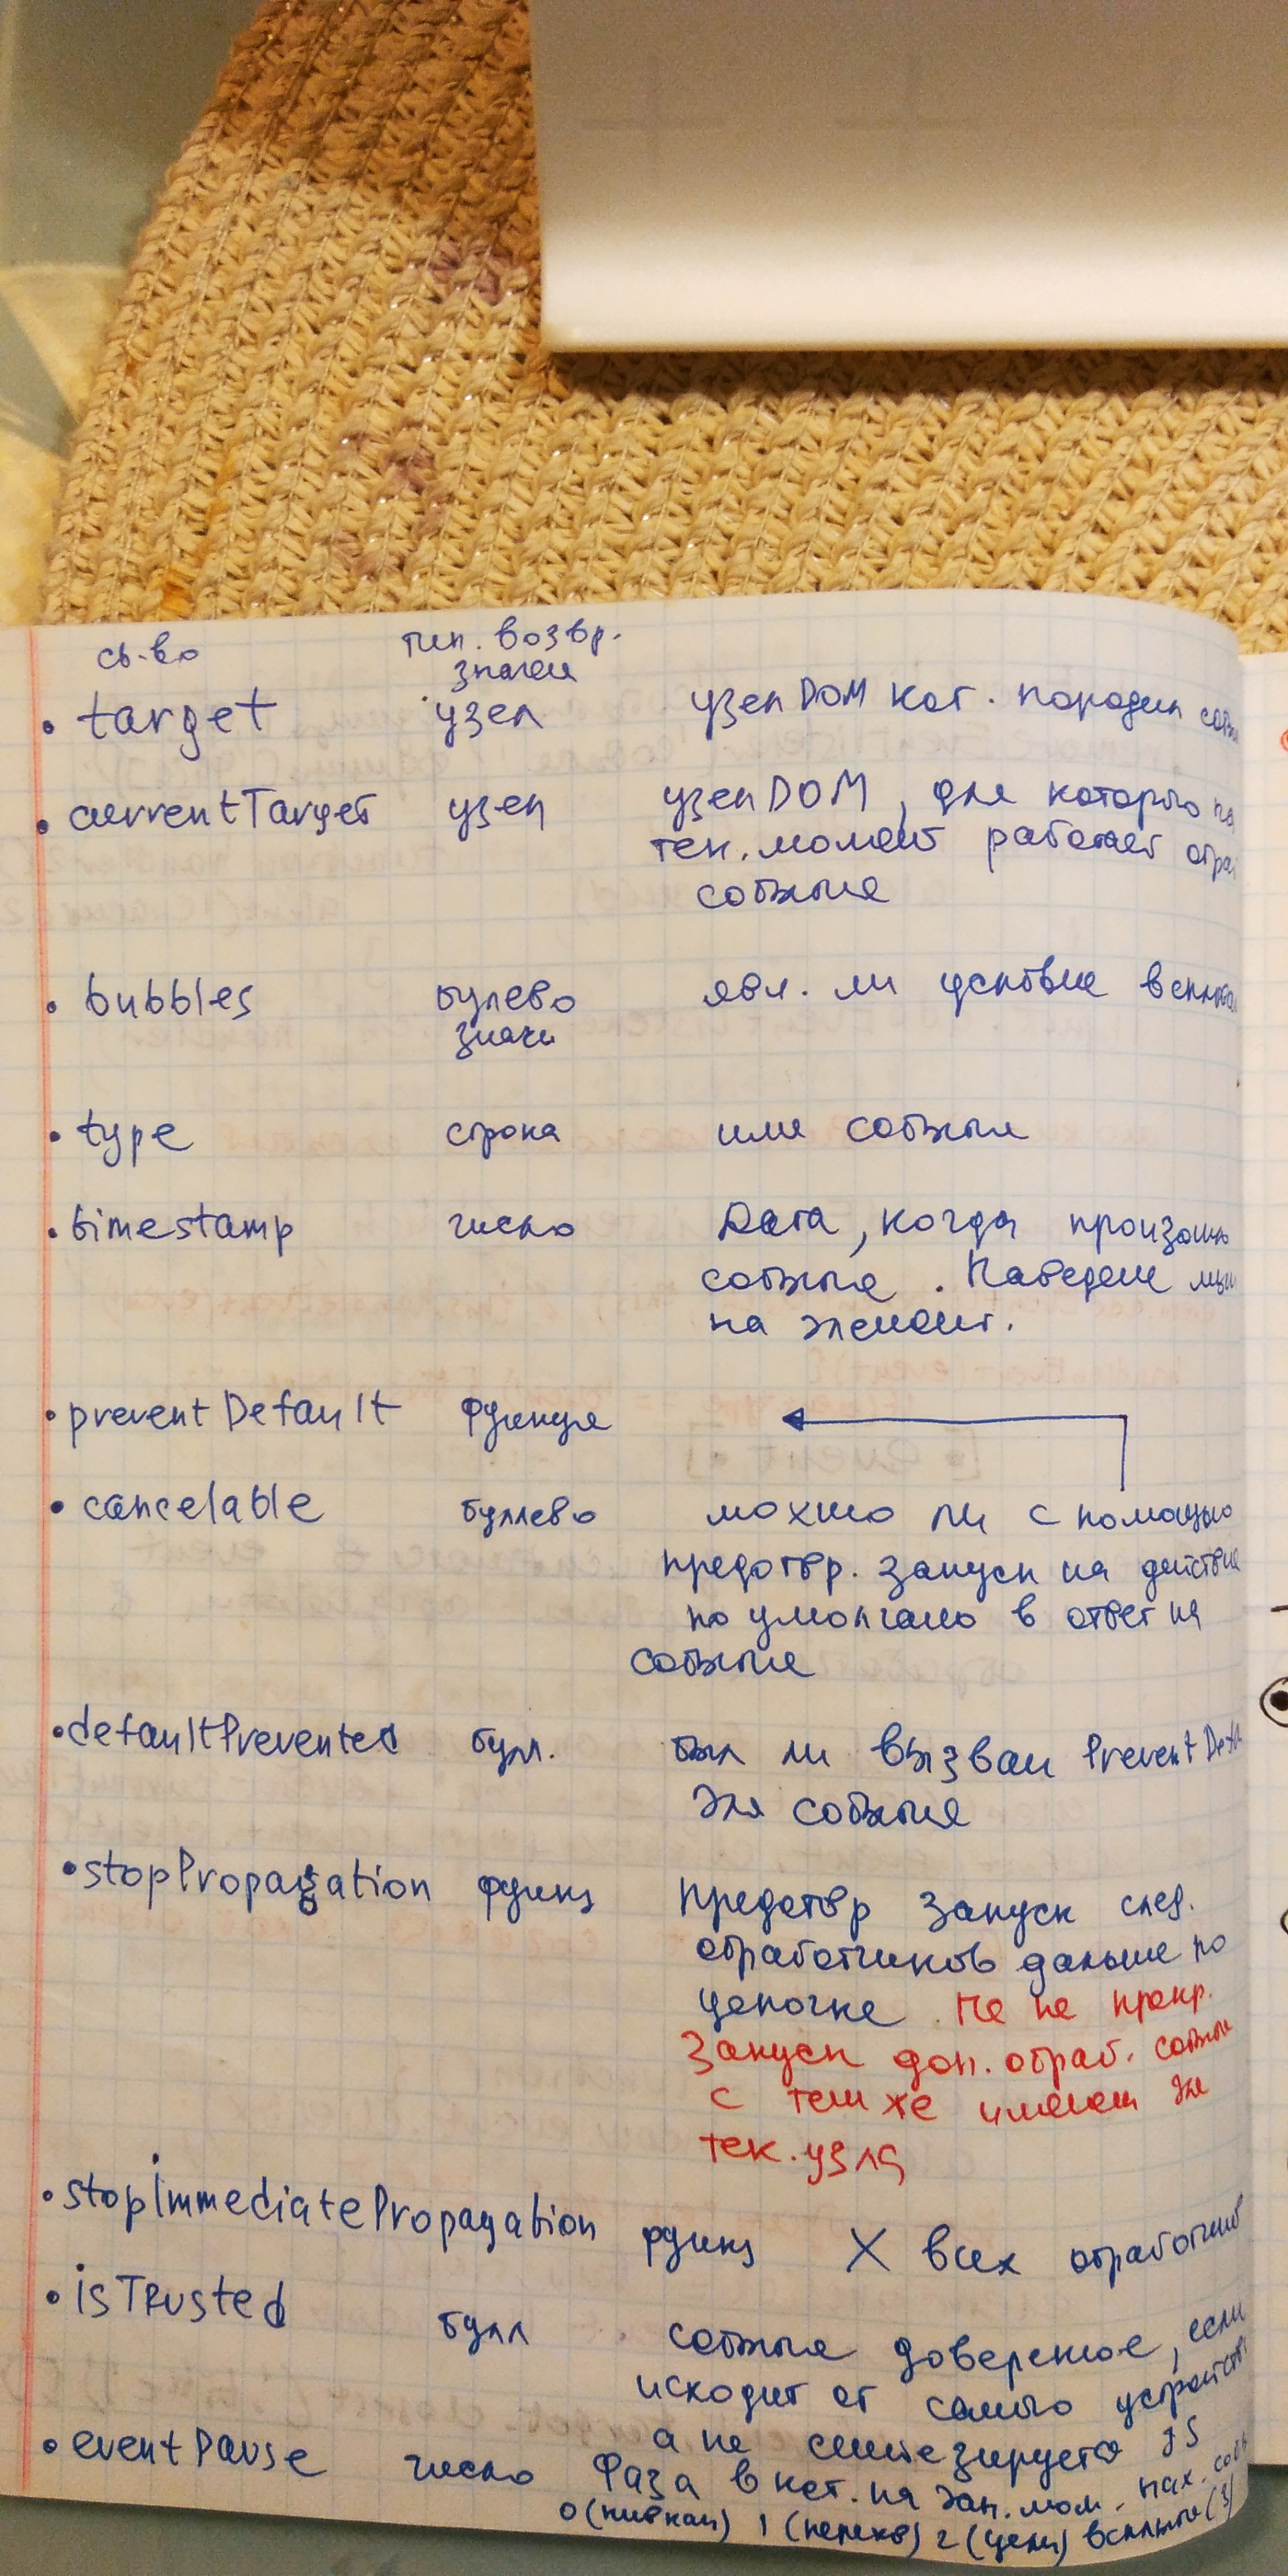 св-во тип. возвр.
значен
• target узел узел DOM кот. породил
• currentTarget узел узел DOM, для которого
тек. момент работает
события
• bubbles булево явл. ли
значен
• type строка имя события
• timestamp число Дата, когда произошло
событие. Наведение
на элемент.
• preventDefault функция
• cancelable буллево можно ли с помощью
предотвр. запуск на действие
по умолчано в ответ на
событие
• defaultPrevented булл. был ли вызван
для события
• stopPropagation функц предотвр запуск след.
обработчиков дальше по
цепочке. Не не прекр.
запуск доп. обраб. событ
с тем же именем для
тек. узла
• stopImmediatePropagation функц X всех обработчиков
• isTRusted булл событие доверенное, если
исходит от самого устройств
а не синтезируется JS
• eventPause число Фаза в кот. на дан. мом. нах.
1 (перехв) 2 (цели)